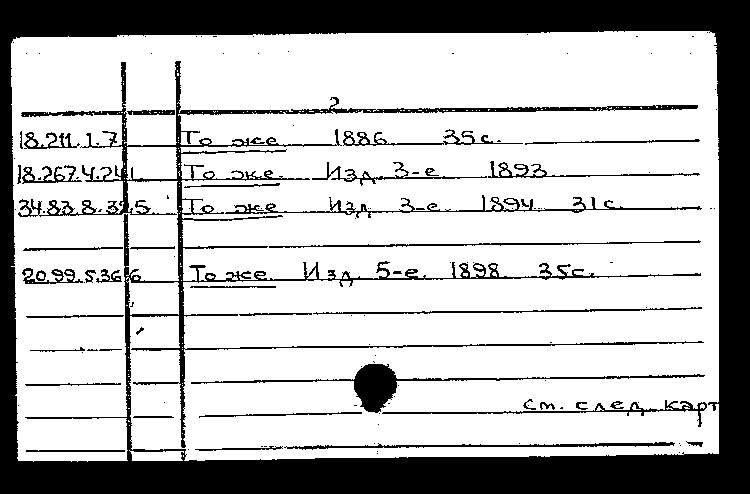 2
18.211.1.7 То же 1886 35 с.
18.267.4.241 То же. Изд. 3-е 1893
34.83.8.325 То же Изд. 3-е 1894 31 с.
20.99.5.366 То же. Изд. 5-е. 1898 35 с.
см. след. карт